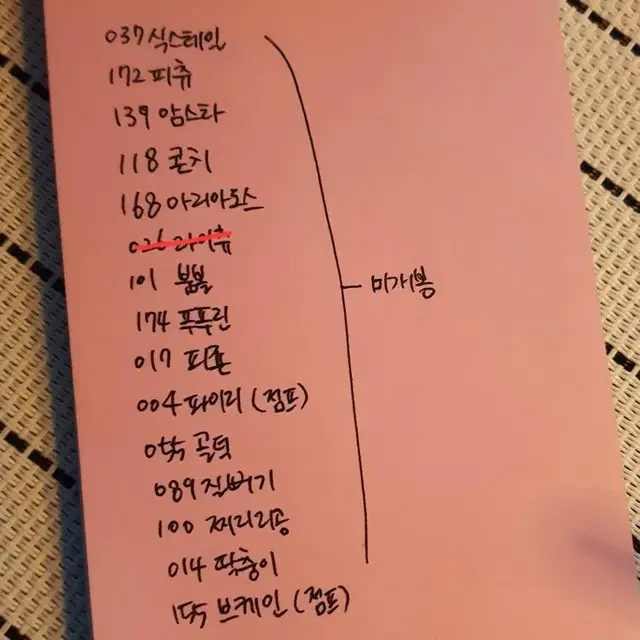 037 식스테일
172 피츄
139 암스타
118 콘치
168 아리아도스
026 라이츄
101 붐볼
174 푸푸린
017 피죤
004 파이리 (점프)
055 골덕
089 질뻐기
100 찌리리공
014 딱충이
155 브케인 (점프)
미개봉